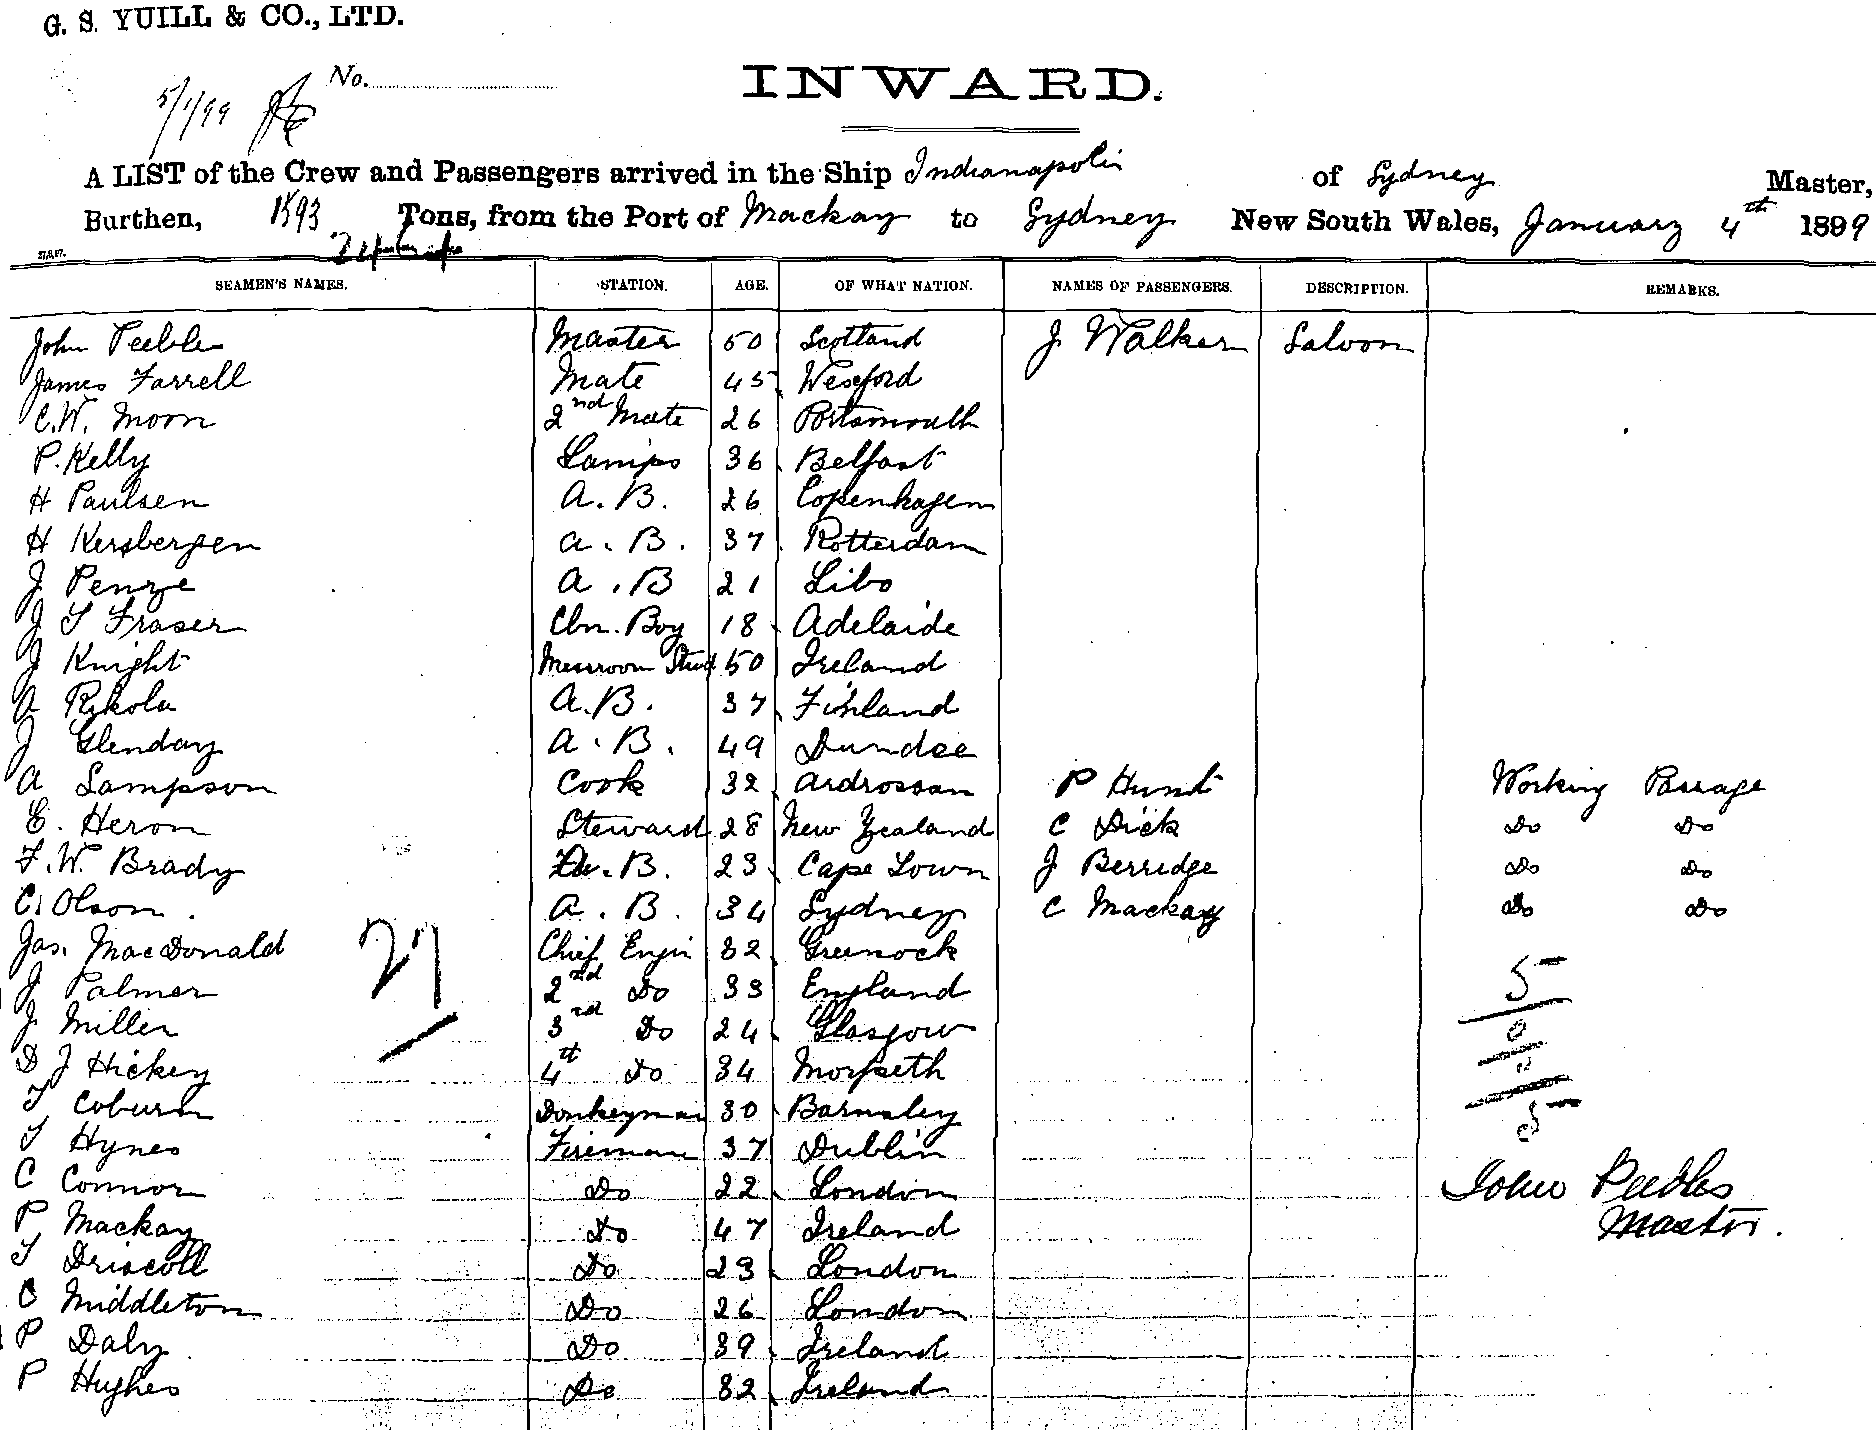 G. S. YUILL & CO., LTD.
No.
5/1/99
INWARD.
A LIST of the Crew and Passengers arrived in the Ship Indianapolis of Sydney Master,
Burthen, 1593 Tons, from the Port of Mackay to Sydney New South Wales, January 4th 1899
SEAMEN'S NAMES. STATION. AGE. OF WHAT NATION. NAMES OF PASSENGERS. DESCRIPTION. REMARKS.
John Peebles Master 50 Scotland J Walker Saloon
James Farrell Mate 45 Wexford
C.W. Moon 2nd Mate 26 Portsmouth
P. Kelly Lamps 36 Belfast
H Paulsen A. B. 26 Copenhagen
H Kersbergen A. B. 37 Rotterdam
J Penze A. B 21 Libo
J T Fraser Cbn. Boy 18 Adelaide
J Knight Messroom Stwd 50 Ireland
A Rikola A.B. 37 Finland
J Glenday A. B. 49 Dundee
A Sampson Cook 32 Ardrossan P Hunt Working Passage
E. Heron Steward 28 New Zealand C Dick Do Do
F.W. Brady A. B. 23 Cape Town J Berridge Do Do
C. Olson A. B. 34 Sydney C Mackay Do Do
Jas. MacDonald Chief Engin 32 Greenock
27
J Palmer 2nd Do 33 England
5
J Miller 3rd Do 24 Glasgow
D J Hickey 4th Do 34 Morpeth
T Coburn Donkeyman 30 Barnsley
5
T Hynes Fireman 37 Dublin
C Connor Do 22 London John Peebles
P Mackay Do 47 Ireland Master.
T Driscoll Do 23 London
C Middleton Do 26 London
P Daly Do 39 Ireland
P Hughes Do 32 Ireland